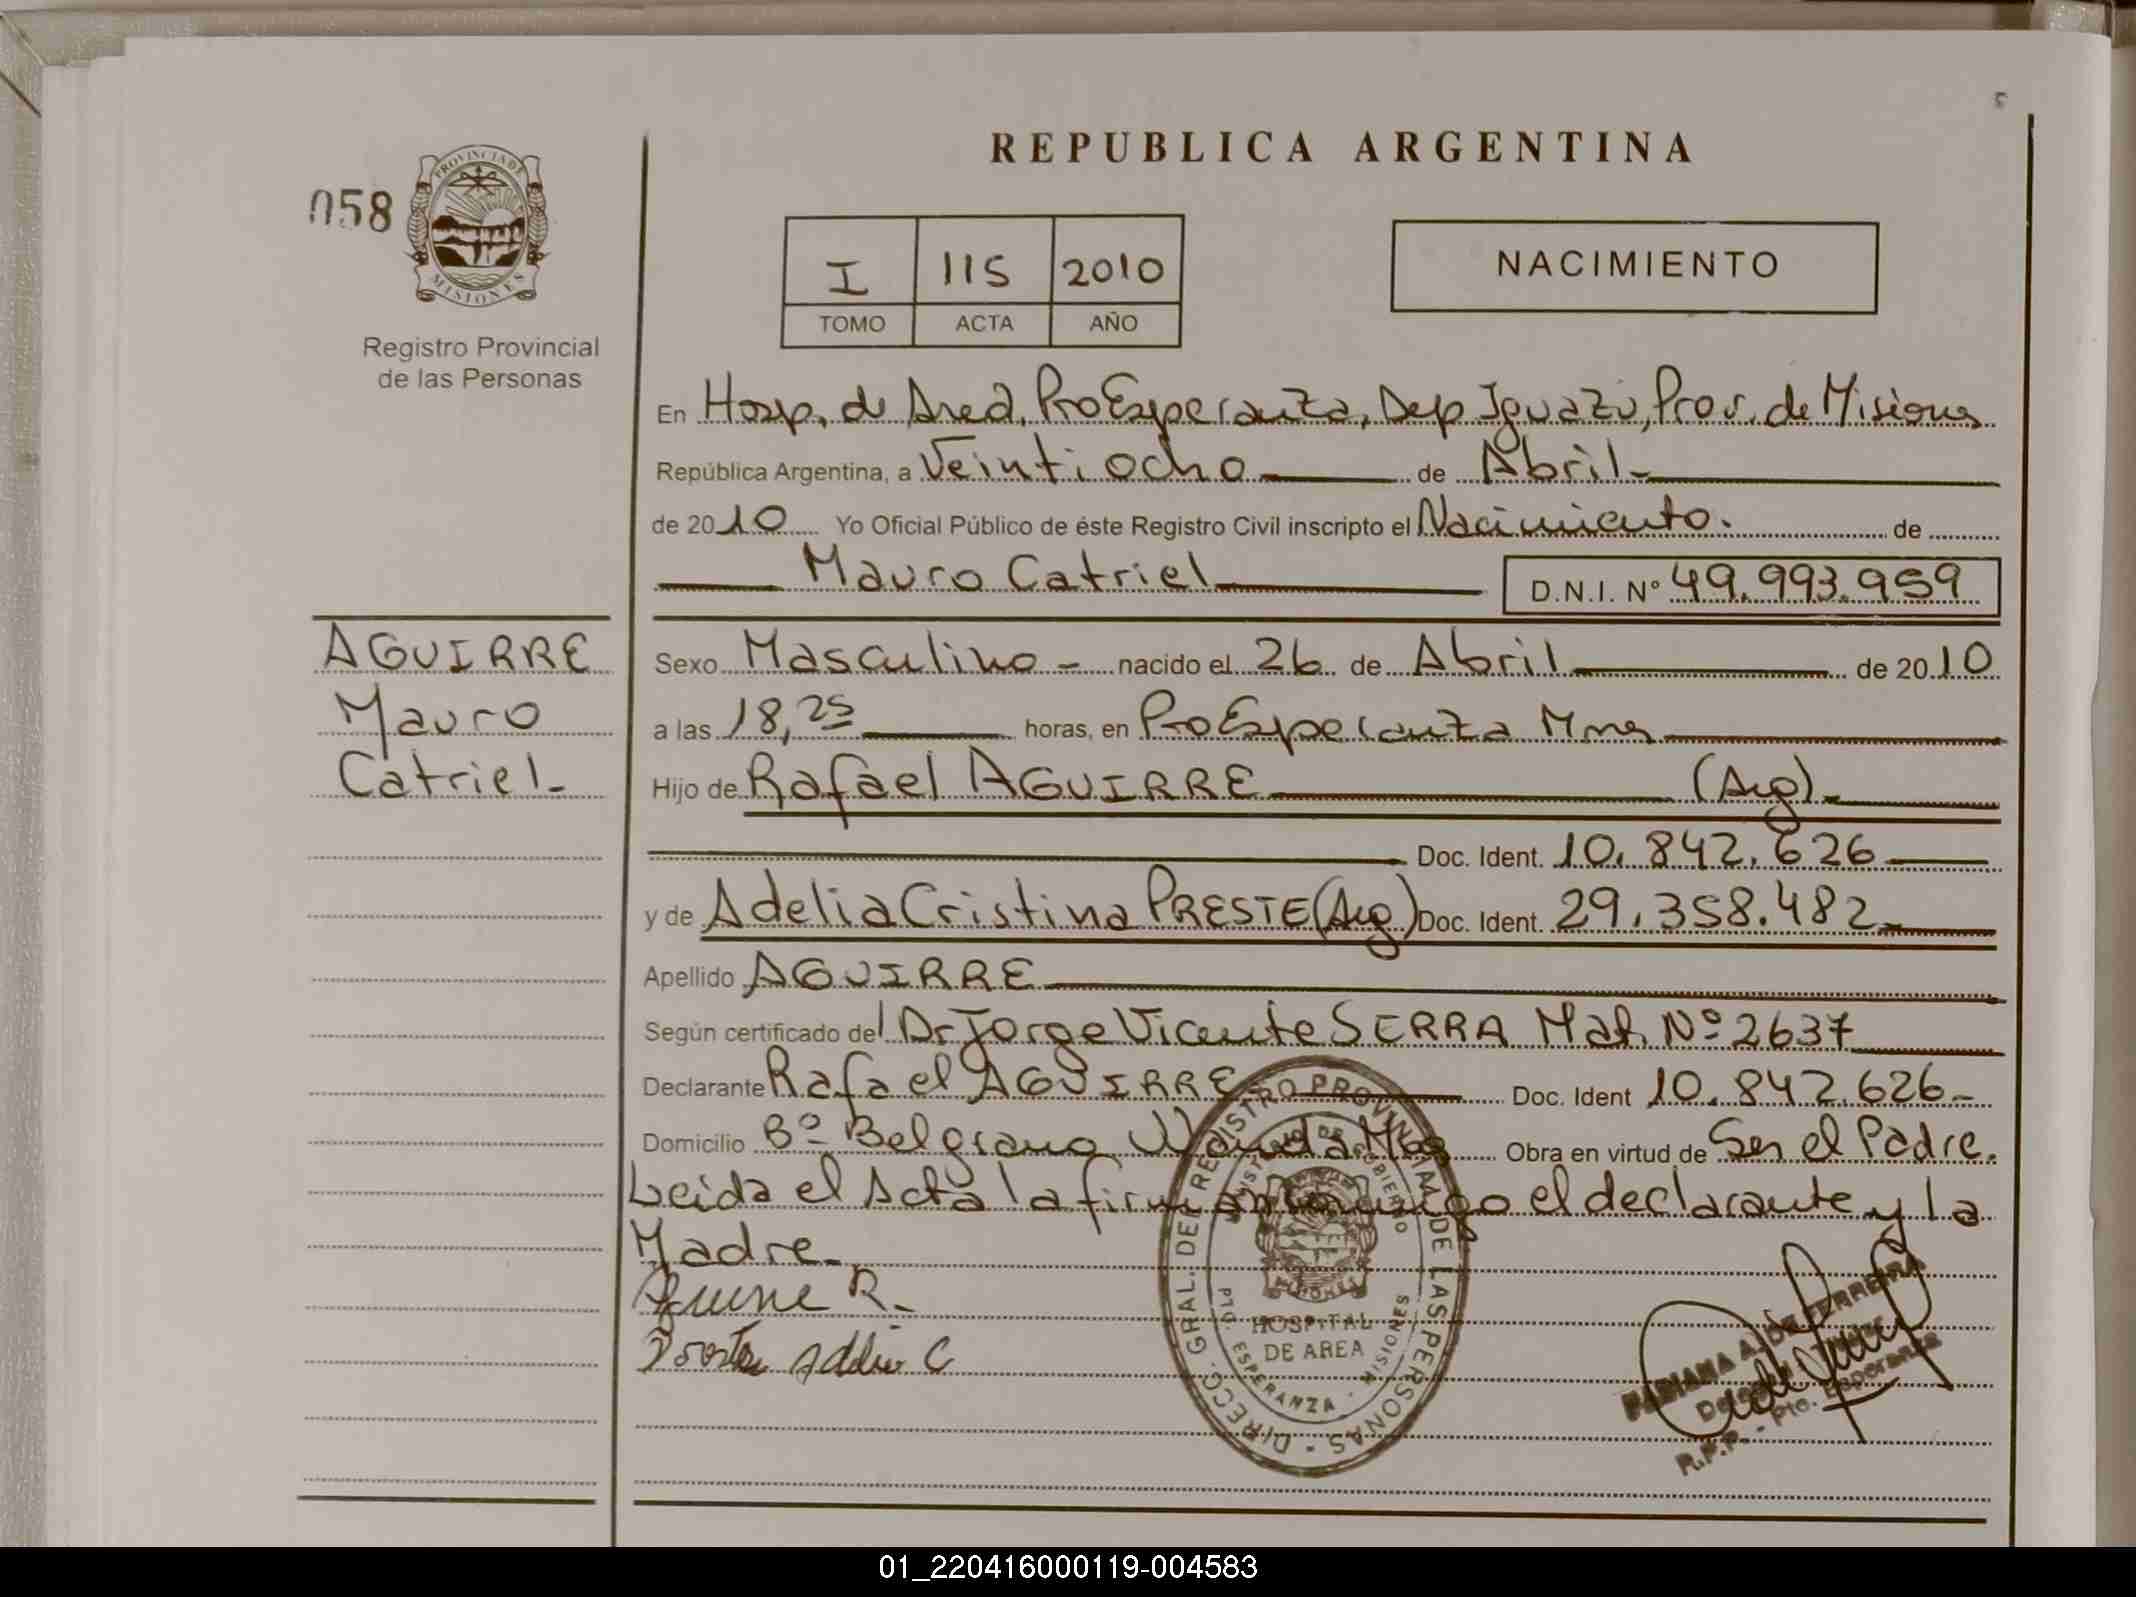 REPUBLICA ARGENTINA
058
PROVINCIA DE
MISIONES
Registro Provincial
de las Personas
I 115 2010
TOMO ACTA AÑO
NACIMIENTO
En Hosp. de Area, Pto Esperanza, Dep Iguazú, Prov. de Misiones
República Argentina, a Veintiocho de Abril
de 2010 Yo Oficial Público de éste Registro Civil inscripto el Nacimiento. de
Mauro Catriel D.N.I. Nº 49.993.959
AGUIRRE
Mauro
Catriel-
Sexo Masculino - nacido el 26 de Abril de 2010
a las 18,25 horas, en Pto Esperanza Mnes
Hijo de Rafael AGUIRRE (Arg).
Doc. Ident. 10.842.626
y de Adelia Cristina PRESTE (Arg) Doc. Ident. 29.358.482
Apellido AGUIRRE
Según certificado del Dr Jorge Vicente SERRA Mat. Nº 2637
Declarante Rafael AGUIRRE Doc. Ident 10.842.626-
Domicilio Bº Belgrano Wanda Mnes Obra en virtud de Ser el Padre.
Leida el Acta la firman conmigo el declarante y la
Madre.
DIRECC. GRAL. DEL REGISTRO PROVINCIAL DE LAS PERSONAS
MINISTERIO DE GOBIERNO
MISIONES
HOSPITAL
DE AREA
PTO. ESPERANZA - MISIONES
FABIANA A. DE FERREIRA
R.P.P. - Pto. Esperanza
01_220416000119-004583